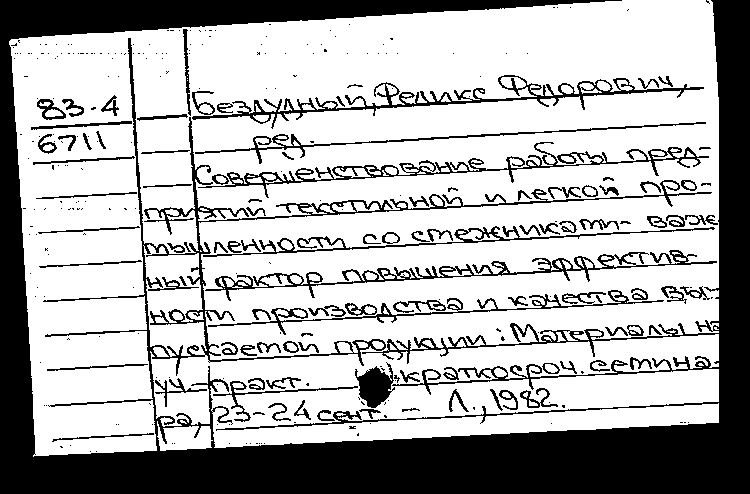 83-4
6711
Бездудный, Феликс Федорович,
ред.
Совершенствование работы пред-
приятий текстильной и легкой про-
мышленности со смежниками- важ
ный фактор повышения эффектив-
ности производства и качества вы-
пускаемой продукции: Материалы на
уч.-практ. краткосроч. семина-
ра, 23-24 сент. - Л., 1982.